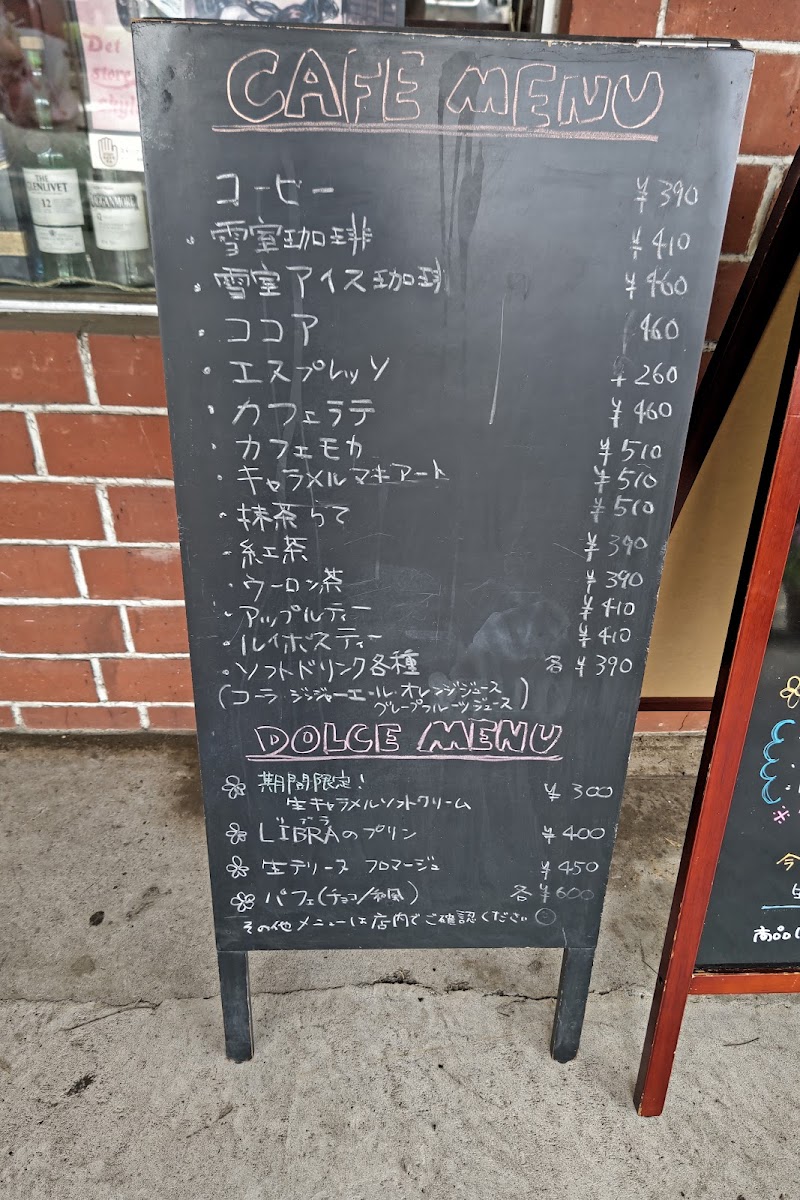 Det
store
THE
GLENLIVET
12
CAFE MENU
コーヒー ¥390
・雪室珈琲 ¥410
・雪室アイス珈琲 ¥460
・ココア 460
・エスプレッソ ¥260
・カフェラテ ¥460
・カフェモカ ¥510
・キャラメルマキアート ¥510
・抹茶らて ¥510
・紅茶 ¥390
・ウーロン茶 ¥390
・アップルティー ¥410
・ルイボスティー ¥410
・ソフトドリンク各種 各¥390
(コーラ・ジンジャーエール・オレンジジュース
グレープフルーツジュース)
DOLCE MENU
期間限定!
生キャラメルソフトクリーム ¥300
リブラ
LIBRAのプリン ¥400
生テリーヌ フロマージュ ¥450
パフェ(チョコ/和風) 各¥600
その他メニューは店内でご確認ください
今
商品